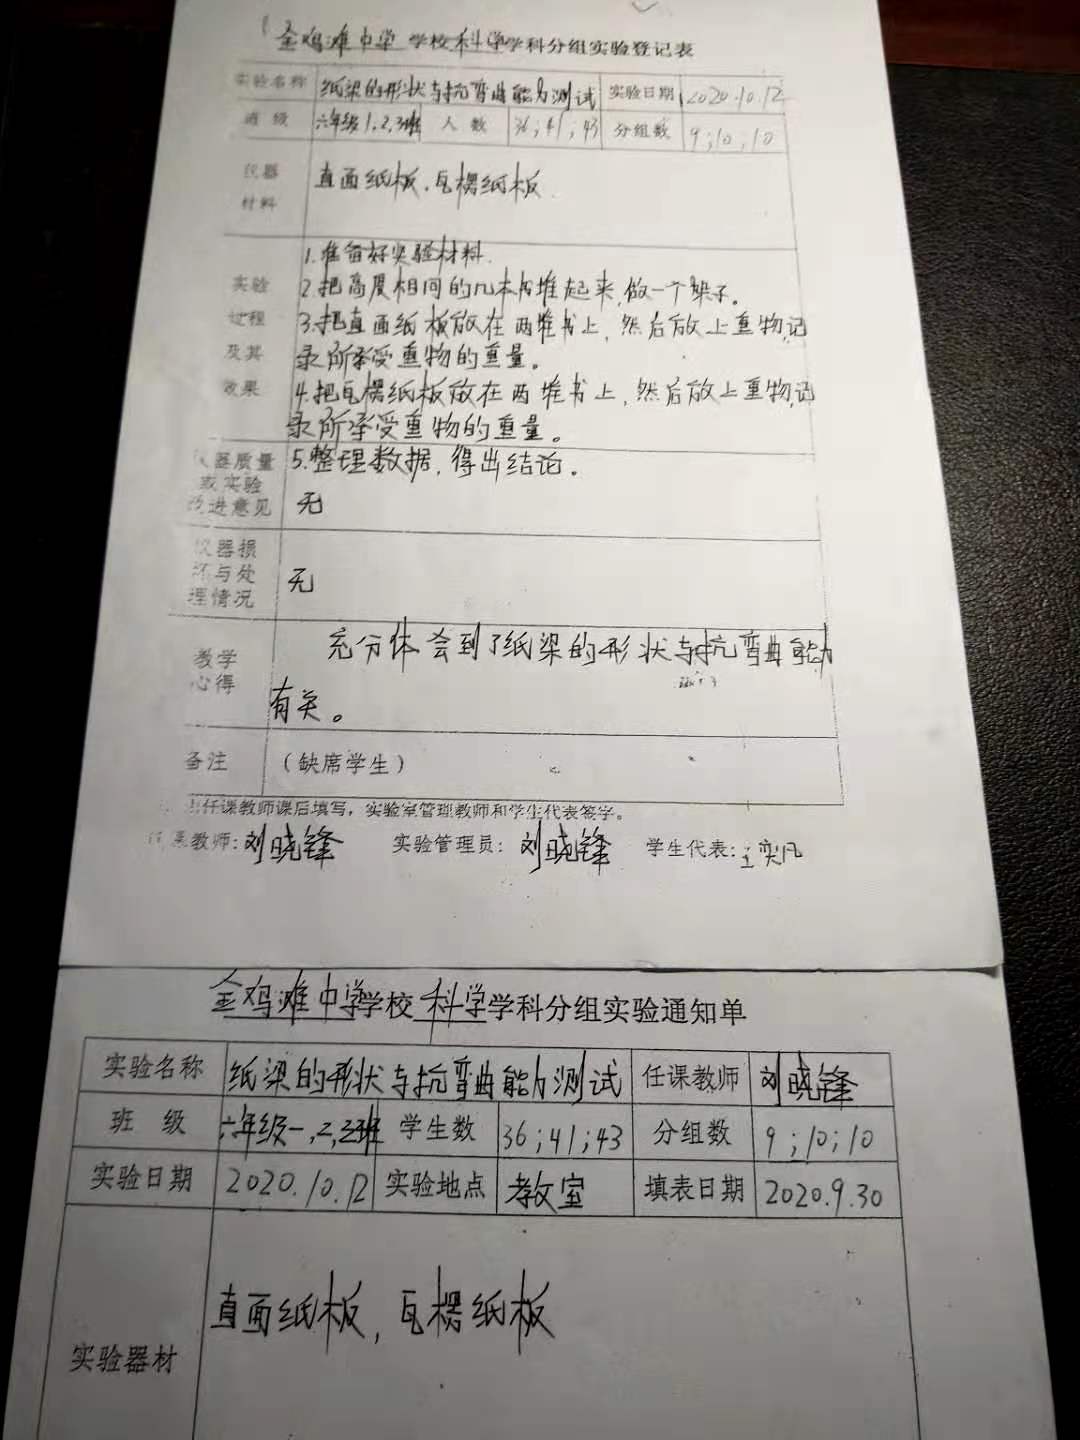 金鸡滩中学 学校科学学科分组实验登记表
实验名称 纸梁的形状与抗弯曲能力测试 实验日期 2020.10.12
班级 六年级1,2,3班 人数 36;41;43 分组数 9;10;10
仪器
材料
直面纸板,瓦楞纸板
实验
过程
及其
效果
1.准备好实验材料.
2.把高度相同的几本书堆起来,做一个架子。
3.把直面纸板放在两堆书上,然后放上重物,记
录所承受重物的重量。
4.把瓦楞纸板放在两堆书上,然后放上重物,记
录所承受重物的重量。
5.整理数据,得出结论。
仪器质量
或实验
改进意见
无
仪器损
坏与处
理情况
无
教学
心得
充分体会到了纸梁的形状与抗弯曲能力
有关。
备注 (缺席学生)
任课教师课后填写,实验室管理教师和学生代表签字。
任课教师:刘晓锋 实验管理员:刘晓锋 学生代表:王奕凡
金鸡滩中学学校 科学学科分组实验通知单
实验名称 纸梁的形状与抗弯曲能力测试 任课教师 刘晓锋
班级 六年级一,2,3班 学生数 36;41;43 分组数 9;10;10
实验日期 2020.10.12 实验地点 教室 填表日期 2020.9.30
实验器材 直面纸板,瓦楞纸板